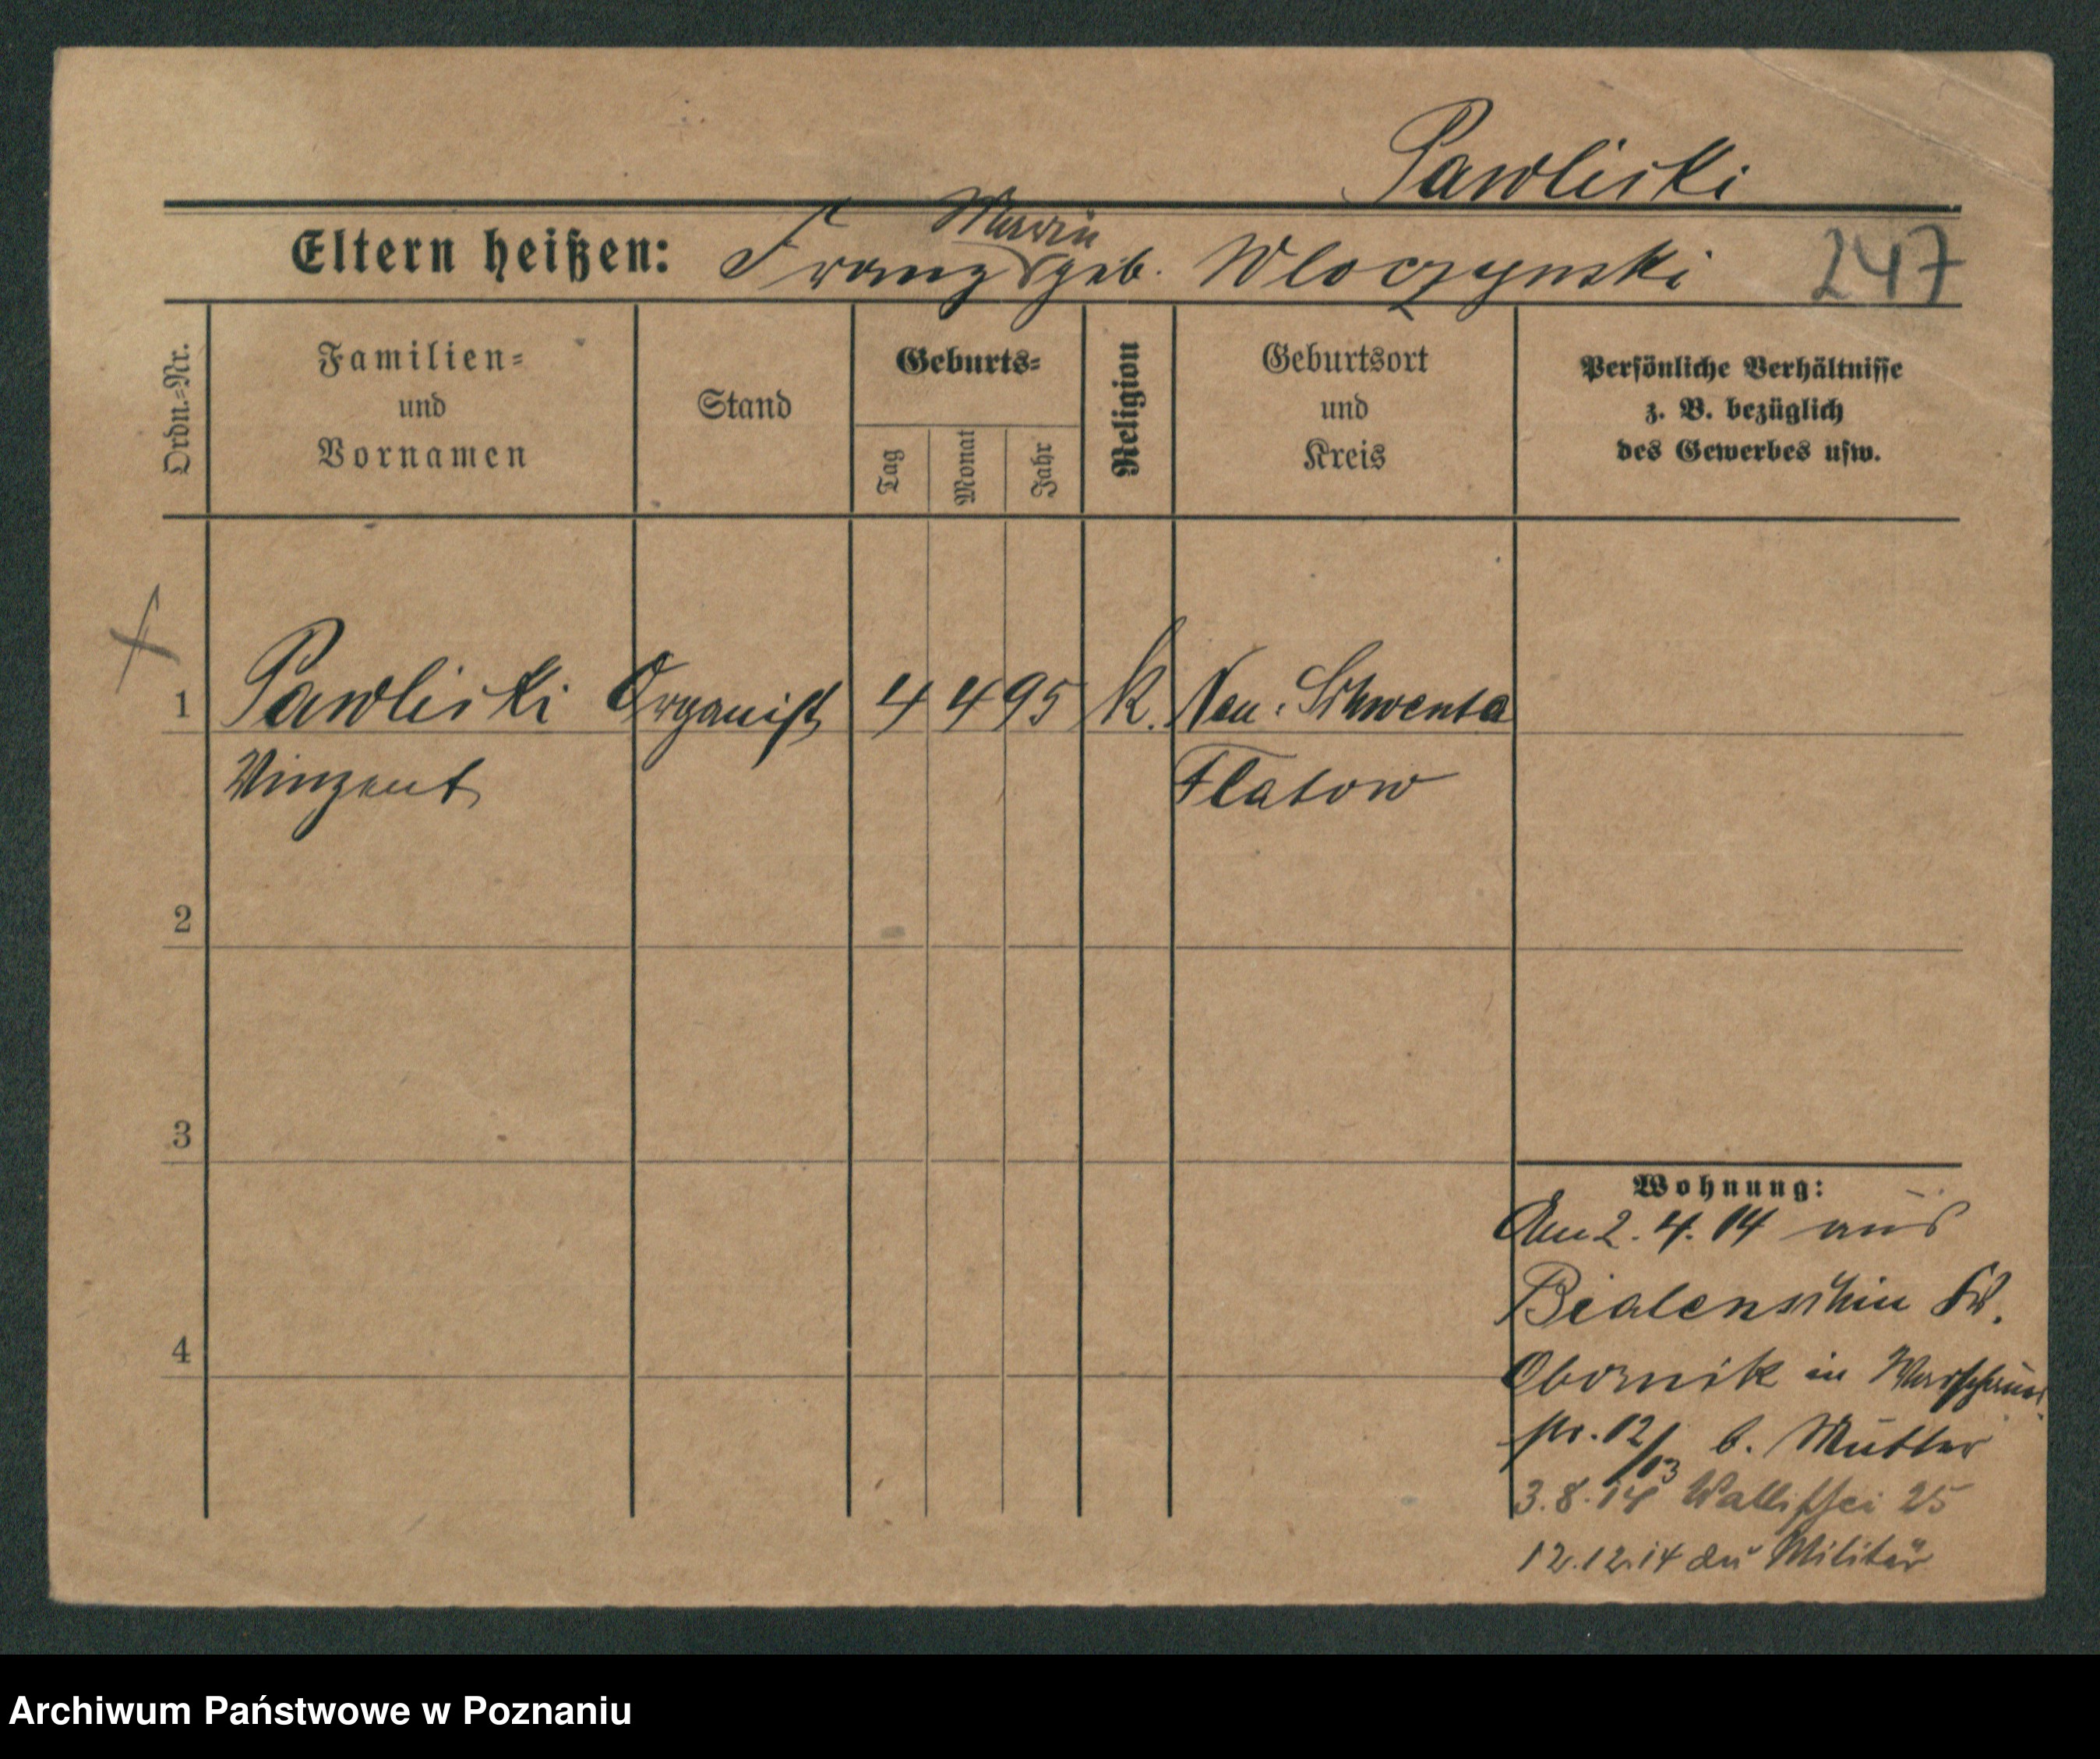 Pawliski
Marin
Eltern heißen: Franz geb. Wloczynski 247
Ordn.=Nr.
Familien=
und
Vornamen
Stand
Geburts=
Tag
Monat
Jahr
Religion
Geburtsort
und
Kreis
Persönliche Verhältnisse
z. B. bezüglich
des Gewerbes usw.
1 Pawliski Organist 4 4 95 k. Neu-Schwenta
Vinzent Flatow
2
3
4
Wohnung:
Am 2. 4. 14 aus
Bialenschin Kr.
Obornik in
12/13 b. Mutter
3.8.14 Wallischei 25
12.12.14 zu Militär
Archiwum Państwowe w Poznaniu